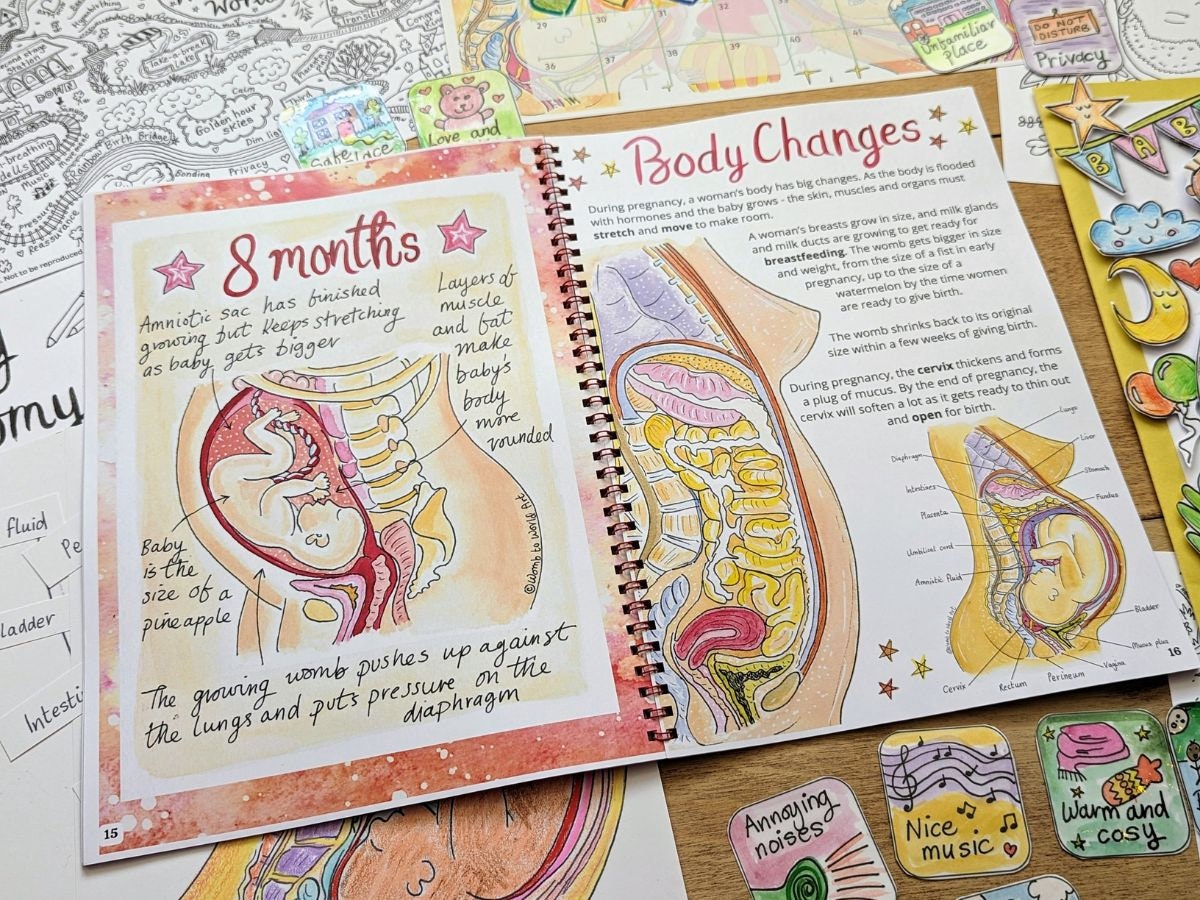 Transition
Take-a-break lake
Golden hour skies
Calm
Birth Bridge
Dim
Privacy
Bonding
Music
Reassurance
Not to be reproduced
omy
fluid
Pe
ladder
Intesti
29
30
31
36
37
38
39
40
41
Unfamiliar place
DO NOT DISTURB
Privacy
Love and
BAB
8 months
Amniotic sac has finished
growing but keeps stretching
as baby gets bigger
Layers of
muscle
and fat
make
baby's
body
more
rounded
Baby
is the
size of a
pineapple
©Womb to World Art
The growing womb pushes up against
the lungs and puts pressure on the
diaphragm
15
Body Changes
During pregnancy, a woman's body has big changes. As the body is flooded
with hormones and the baby grows - the skin, muscles and organs must
stretch and move to make room.
A woman's breasts grow in size, and milk glands
and milk ducts are growing to get ready for
breastfeeding. The womb gets bigger in size
and weight, from the size of a fist in early
pregnancy, up to the size of a
watermelon by the time women
are ready to give birth.
The womb shrinks back to its original
size within a few weeks of giving birth.
During pregnancy, the cervix thickens and forms
a plug of mucus. By the end of pregnancy, the
cervix will soften a lot as it gets ready to thin out
and open for birth.
Lungs
Diaphragm
Liver
Stomach
Intestines
Fundus
Placenta
Umbilical cord
Amniotic fluid
Bladder
Mucus plug
Vagina
Perineum
Rectum
Cervix
16
Annoying
noises
Nice
music
Warm and
cosy